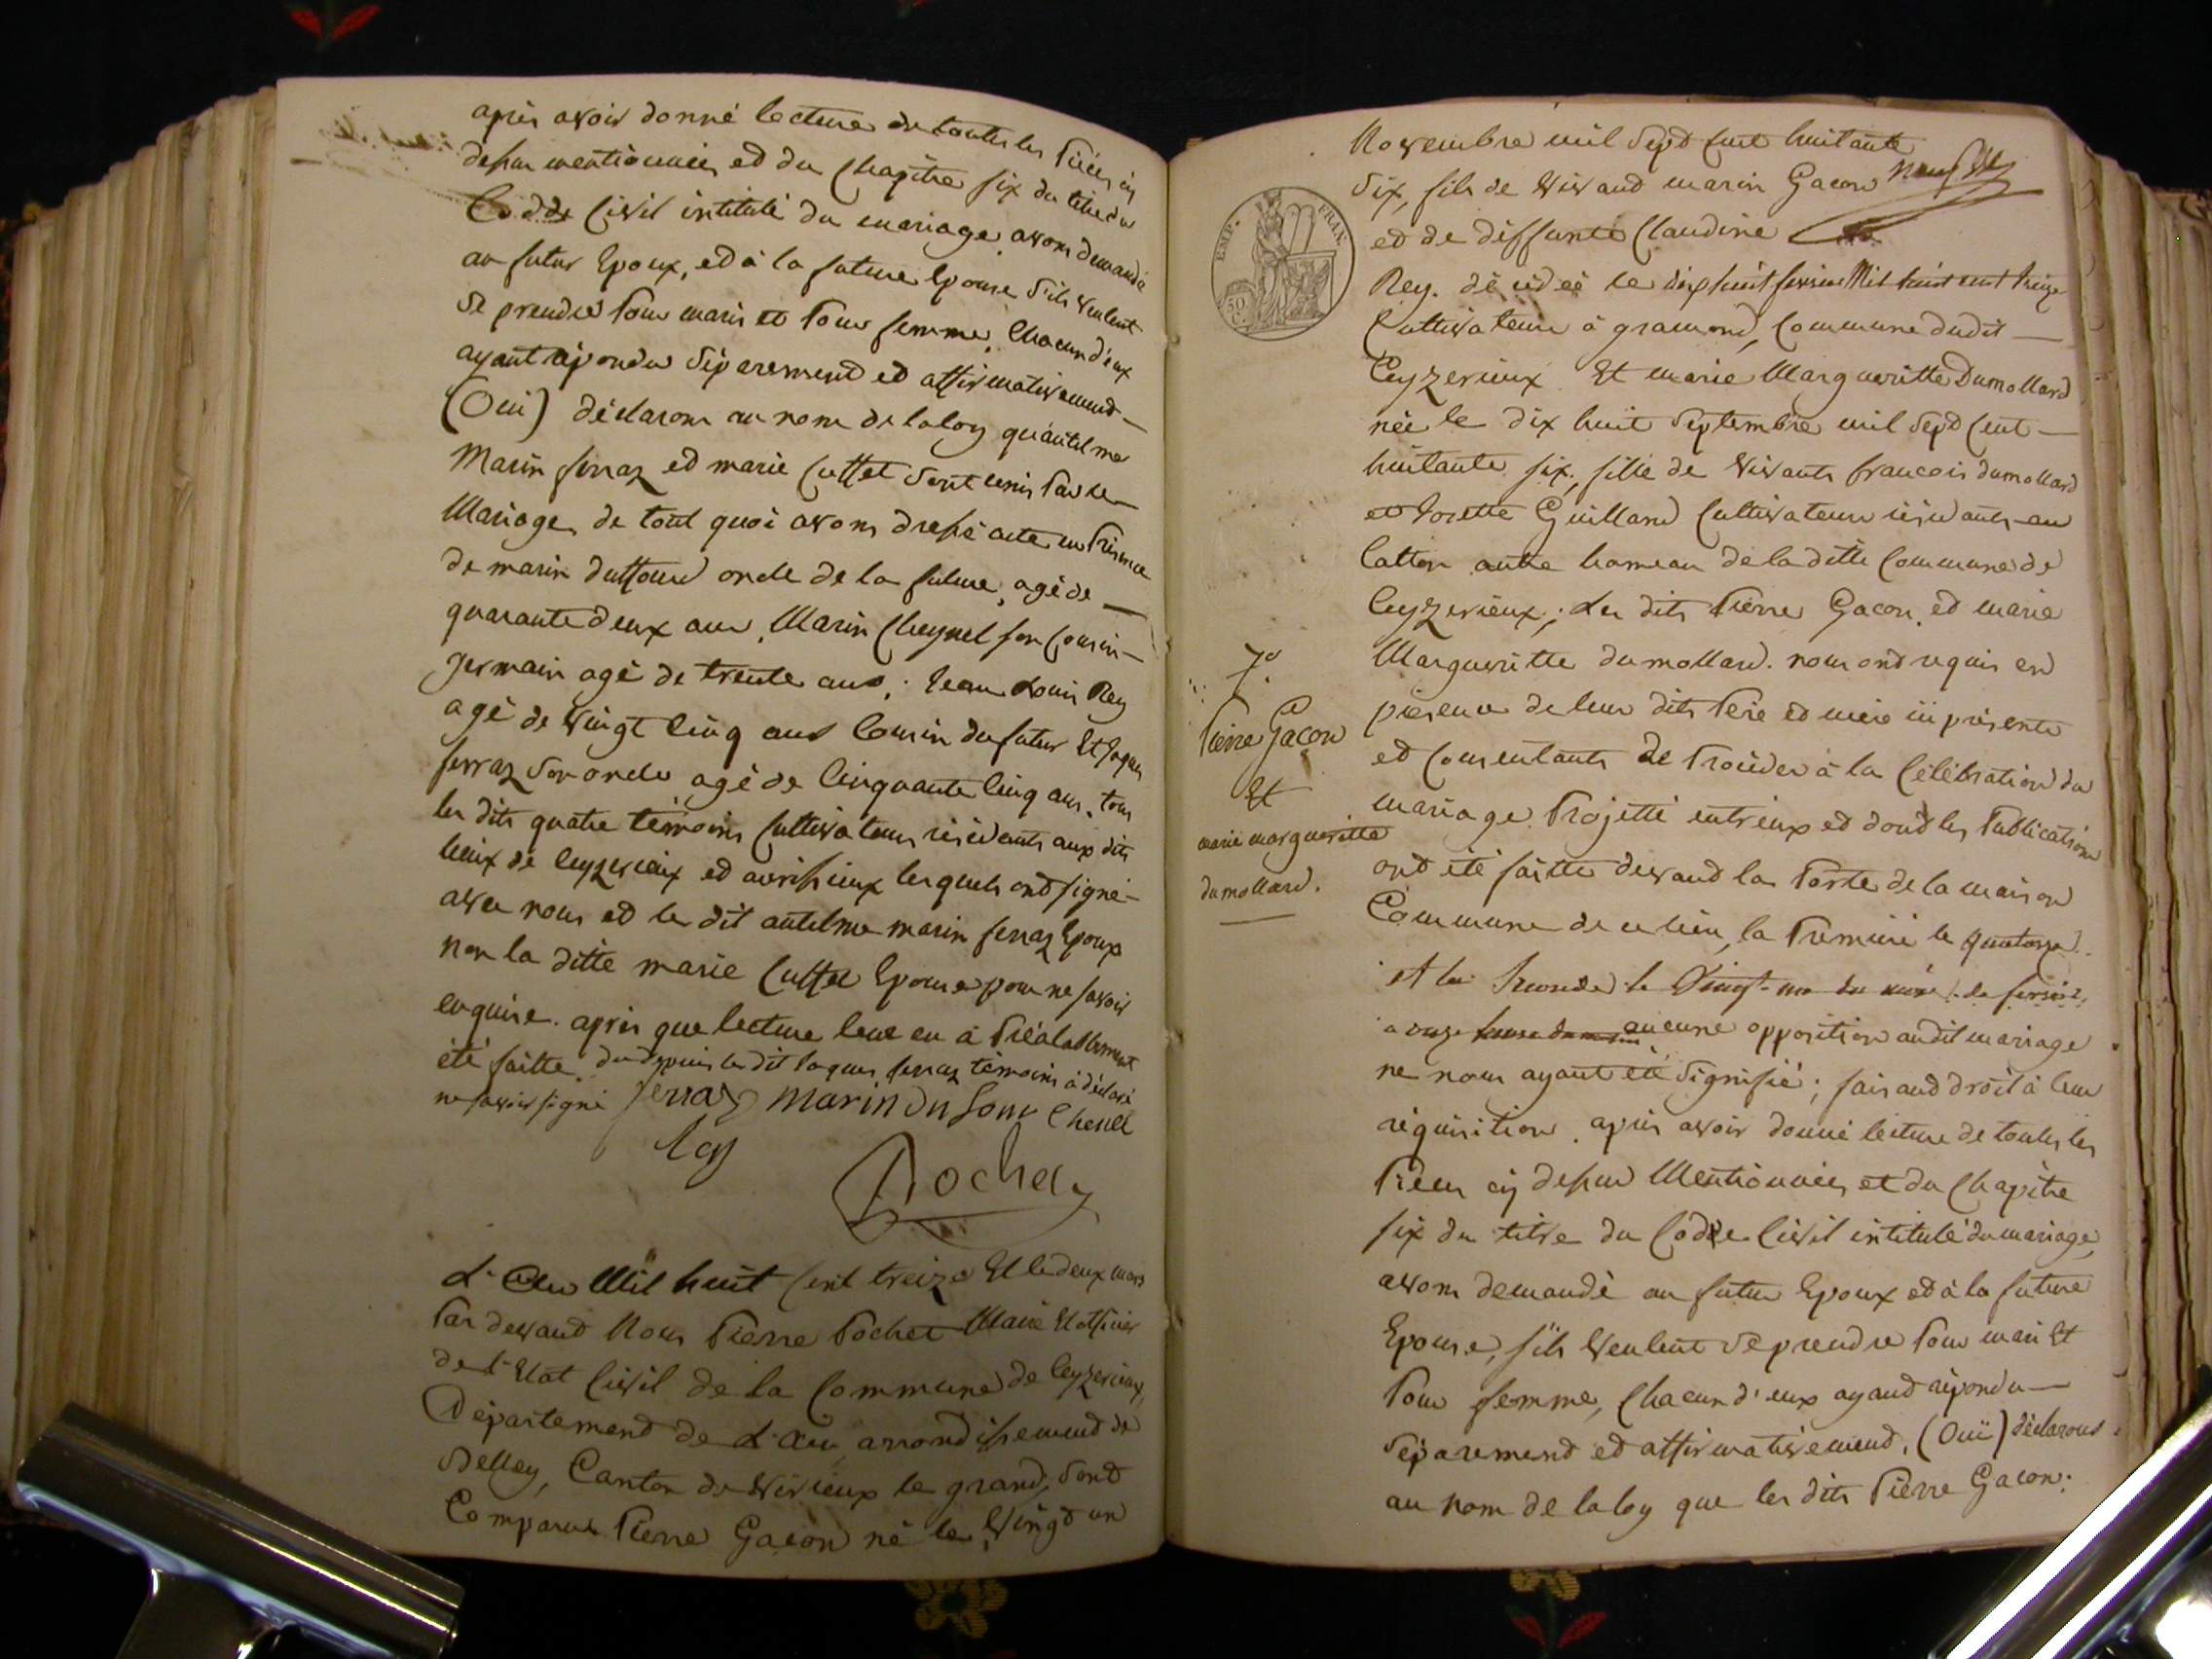 après avoir donné lecture de toutes les Pièces cy
dessus mentionnées et du Chapitre six du titre du
Codde Civil intitulé du mariage avons demandé
au futur Epoux, et à la future Epouse s'ils veulent
se prendre Pour maris et Pour femme, Chacun d'eux
ayant répondu Séparement et affirmativement —
(Oui) déclarons au nom de la loy qu'antelme
Marin ferraz et marie Cuttet sont unis Par le
Mariage, de tout quoi avons dressé acte en Présence
de marin duffour oncle de la future, agé de —
quarante deux ans, Marin Cheynel son Cousin —
germain agé de trente ans; Jean Louis Rey
agé de vingt Cinq ans Cousin du futur Et Jaques
ferraz son oncle agé de Cinquante Cinq ans, tous
les dits quatre témoins Cultivateurs résidants aux dits
lieux de Ceyzerieux et avrissieux lesquels ont signé —
avec nous et le dit antelme marin ferraz Epoux
non la ditte marie Cuttet Epouse pour ne savoir
enquise. après que lecture leur en à Préalablement
été faitte. du depuis le dit Jaques ferraz témoins à déclaré
ne savoir signé ferraz marin Dufour Chenel
Rey
Pochet
L'an Mil huit Cent treize Et le deux mars
Par devant Nous Pierre Pochet Maire Et officier
de l'Etat Civil de la Commune de Ceyzerieux,
Département de L'ain, arrondissement de
Belley, Canton de Virieux le grand, Sont
Comparus Pierre Gacon né le, Vingt un
Novembre mil Sept Cent huitante
Six, fils de Vivant marin Gacon
et de deffunte Claudine
Rey. décédéé le dix huit fevrier Mil huit cent treize
Cultivateur à gramond, Commune dudit —
Ceyzerieux. Et marie Margueritte Dumollard
née le dix huit Septembre mil Sept Cent —
huitante six, fille de Vivants francois dumollard
et Josette Guilland Cultivateurs résidants au
Catton autre hameau de la ditte Commune de
Ceyzerieux; Les dits Pierre Gacon et marie
Margueritte dumollard. nous ont requis en
présence de leur dits Père et mère ici présents
et Consentants de Procéder à la Célébration du
mariage Projetté entr'eux et dont les Publications
ont été faitte devant la Porte de la maison
Commune de ce lieu, la Premiere le quatorze
et la Seconde le Vingt-un du mois de fevrier
aucune opposition audit mariage
ne nous ayant été Signifié; faisant droit à leur
réquisition, après avoir donné lecture de toutes les
Pièces cy dessus Mentionnées et du Chapitre
six du titre du Codde Civil intitulé du mariage,
avons demandé au futur Epoux et à la future
Epouse, s'ils Veulent se prendre Pour mari Et
Pour femme, Chacun d'eux ayant répondu —
Séparement et affirmativement, (Oui) déclarons
au nom de la loy que les dits Pierre Gacon.
EMP. FRAN.
50
7°
Pierre Gacon
Et
marie margueritte
dumollard.